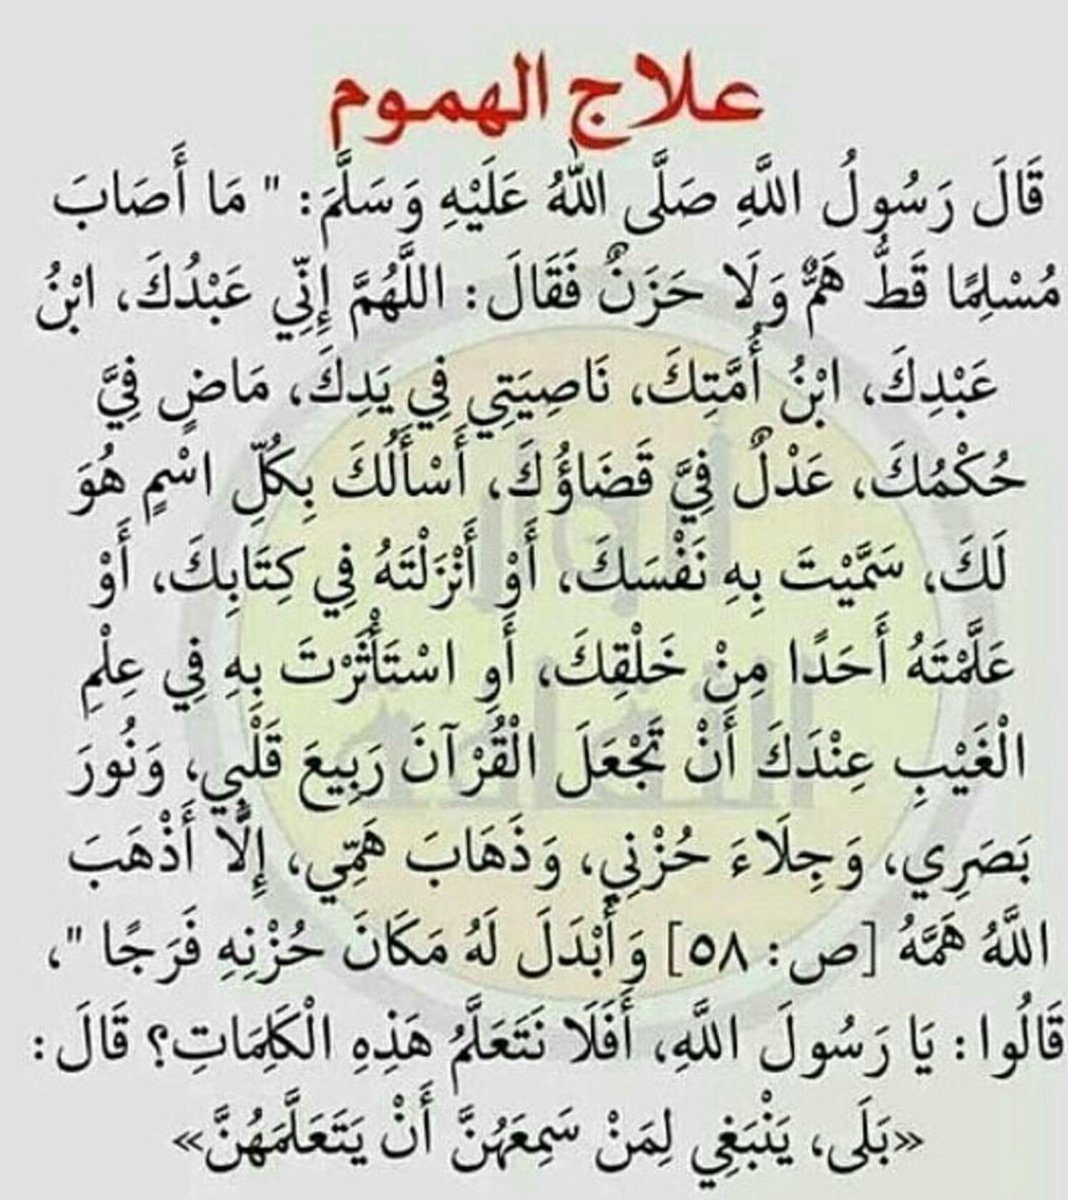 علاج الهموم
قَالَ رَسُولُ اللَّهِ صَلَّى اللهُ عَلَيْهِ وَسَلَّمَ: " مَا أَصَابَ
مُسْلِمًا قَطُّ هَمٌّ وَلَا حَزَنٌ فَقَالَ: اللَّهُمَّ إِنِّي عَبْدُكَ، ابْنُ
عَبْدِكَ، ابْنُ أُمَّتِكَ، نَاصِيَتِي فِي يَدِكَ، مَاضٍ فِيَّ
حُكْمُكَ، عَدْلٌ فِيَّ قَضَاؤُكَ، أَسْأَلُكَ بِكُلِّ اسْمٍ هُوَ
لَكَ، سَمَّيْتَ بِهِ نَفْسَكَ، أَوْ أَنْزَلْتَهُ فِي كِتَابِكَ، أَوْ
عَلَّمْتَهُ أَحَدًا مِنْ خَلْقِكَ، أَوِ اسْتَأْثَرْتَ بِهِ فِي عِلْمِ
الْغَيْبِ عِنْدَكَ أَنْ تَجْعَلَ الْقُرْآنَ رَبِيعَ قَلْبِي، وَنُورَ
بَصَرِي، وَجِلَاءَ حُزْنِي، وَذَهَابَ هَمِّي، إِلَّا أَذْهَبَ
اللَّهُ هَمَّهُ [ص: ٥٨] وَأَبْدَلَ لَهُ مَكَانَ حُزْنِهِ فَرَجًا "،
قَالُوا: يَا رَسُولَ اللَّهِ، أَفَلَا نَتَعَلَّمُ هَذِهِ الْكَلِمَاتِ؟ قَالَ:
«بَلَى، يَنْبَغِي لِمَنْ سَمِعَهُنَّ أَنْ يَتَعَلَّمَهُنَّ»